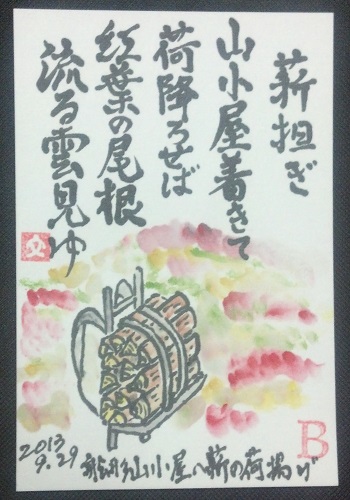 薪担ぎ
山小屋着きて
荷降ろせば
紅葉の尾根
流る雲見ゆ
B
2013
9.29
山小屋へ薪の荷揚げ